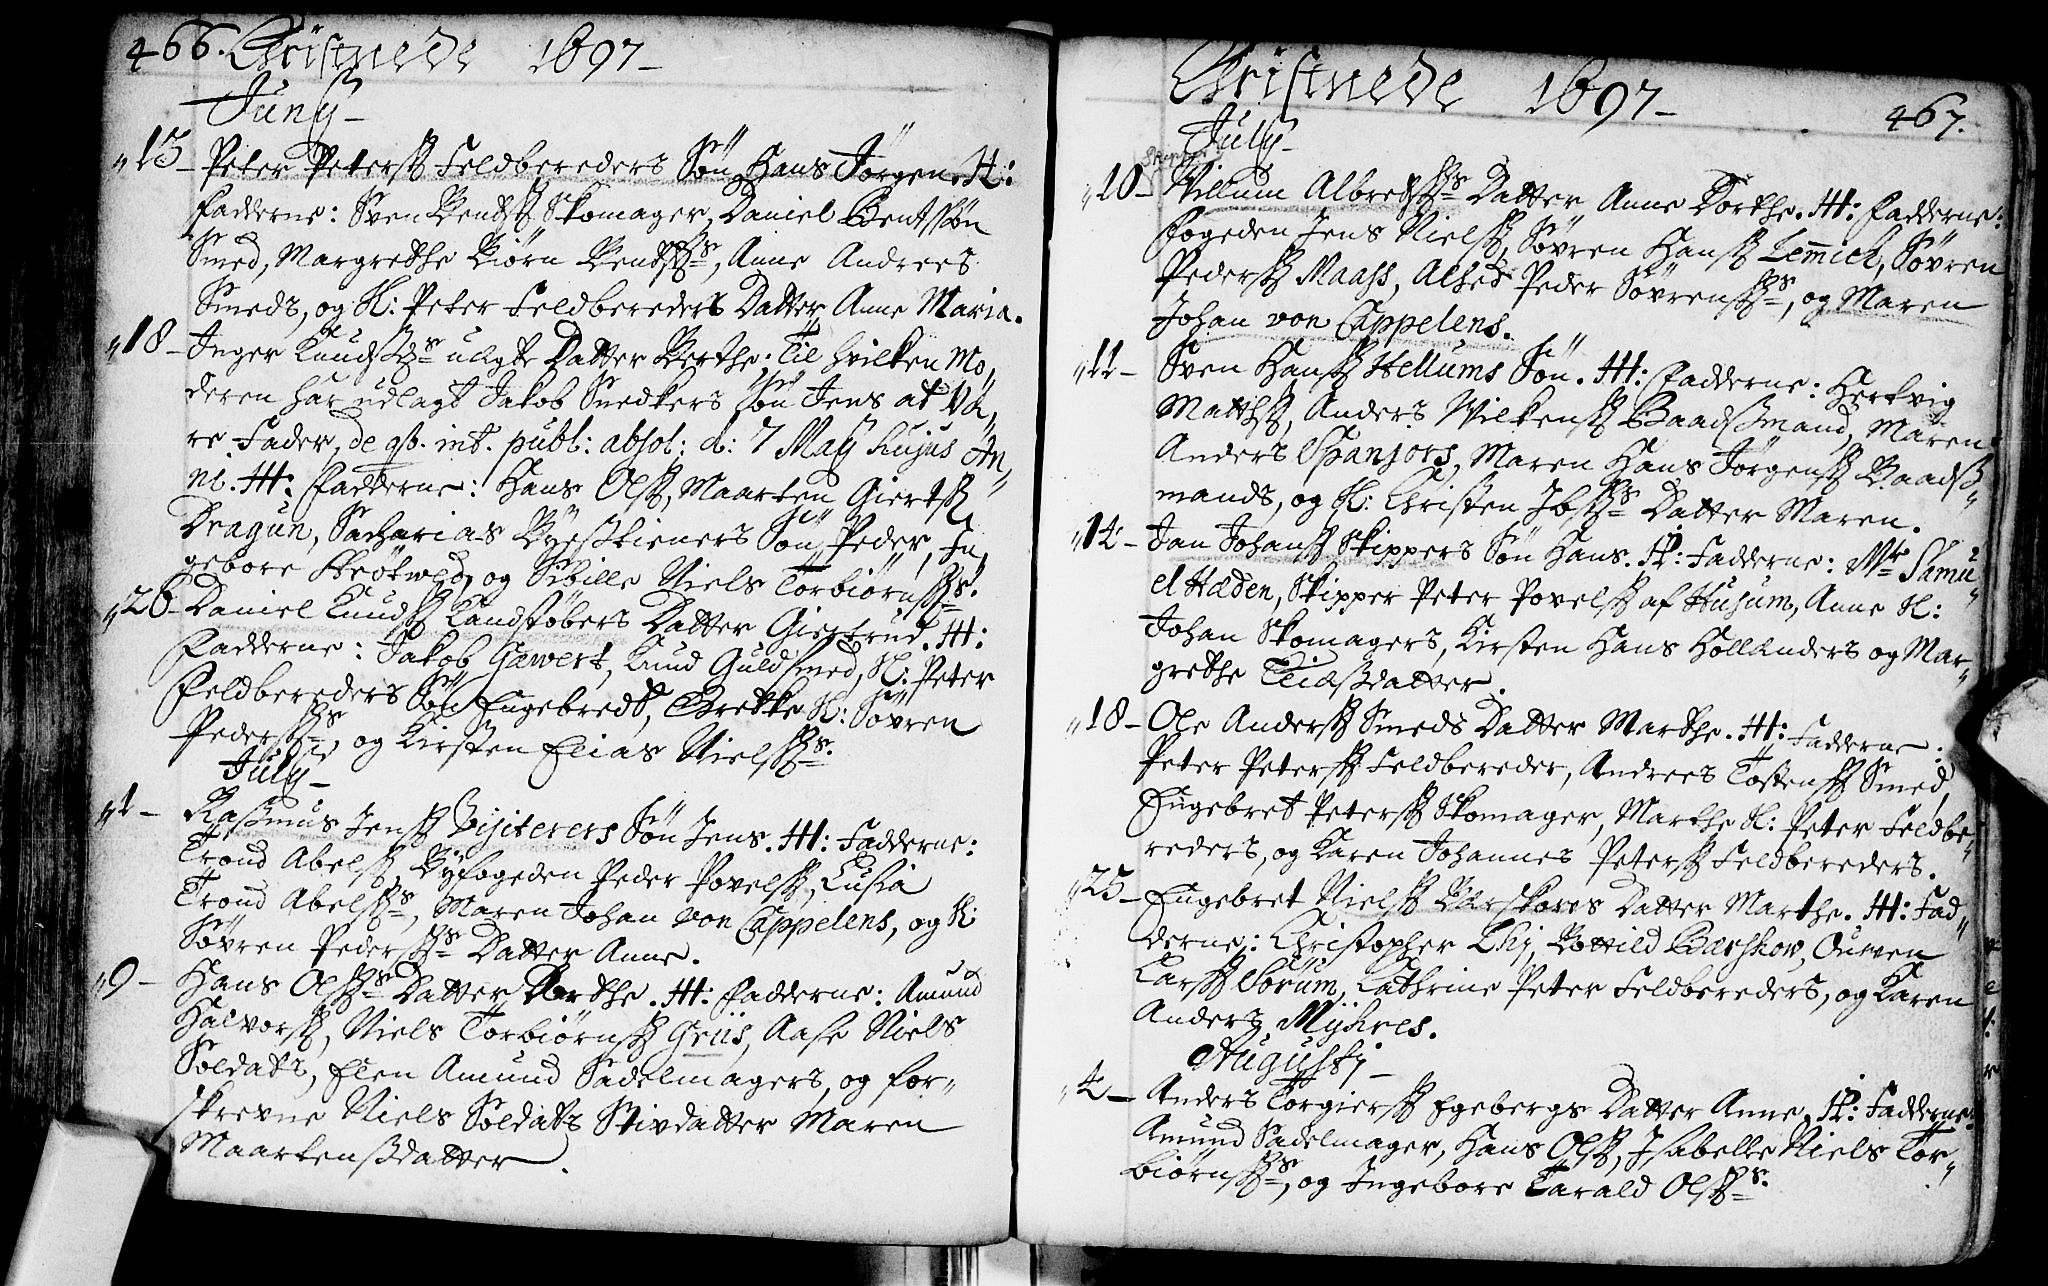 466. Christnede 1697 –
Junij –
„13 – Peter Peterss Feldbereders Søn Hans Jørgen. H:
Fadderne: Sven Bentss Skomager, Daniel Bentssøn
Smed, Margrethe Biørn Bentss:s, Anne Andrees
Smeds, og H: Peter Feldbereders Datter Anne Maria.
„18 – Inger Knudssds uegte Datter Berthe; Til hvilken Mo„
deren har udlagt Jakob Snedkers Søn Jens at væ„
re Fader, de qv. int. publ: absol: d: 7 Maij hujus An„
ni. H: Fadderne: Hans Olss, Maarten Giertss
Dragun, Sacharias Byessvieners Søn Peder, In„
gebore, og Sibille Niels Torbiørnss:s.
„20 – Daniel Knudss Kandstøbers Datter Giertrud. H:
Fadderne: Jakob Gewert, Knud Guldsmed, H: Peter
Feldbereders Søn Engebredt, Grethe H: Søvren
Pederss:s, og Kirsten Elias Nielss:s.
July –
„1 – Rasmus Jenss Visiterers Søn Jens. H: Fadderne:
Trond Abelss, Byfogeden Peder Povelss, Lusia
Trond Abelss:s, Maren Johan von Cappelens, og H:
Søvren Pederss:s Datter Anne.
„9 – Hans Olss:s Datter Dorthe. H: Fadderne: Amund
Halvorss, Niels Torbiørnss Griis, Aase Niels
Soldats, Elen Amund Sadelmagers, og for„
skrevne Niels Soldats Stivdatter Maren
Maartenssdatter.
Christnede 1697 – 467.
July –
Skipper
„10 – Willum Albretss:s Datter Anne Dorthe. H: Fadderne:
Fogeden Jens Nielss, Søvren Hanss Lemich, Søvren
Pederss Maass, Alhed Peder Søvrenss:s, og Maren
Johan von Cappelens.
„11 – Sven Hanss Hellums Søn. H: Fadderne: Hertvig
Matthss, Anders Wilkenss Baadssmand, Maren
Anders Spanjors, Maren Hans Jørgenss Baadss„
mands, og H: Christen Ibss:s Datter Maren.
„14 – Jan Johanss Skippers Søn Hans. H: Fadderne: Mr Samu„
el Hæden, Skipper Peter Povelss af Husum, Anne H:
Johan Skomagers, Kirsten Hans Hollanders og Mar„
grethe Eliæssdatter.
„18 – Ole Anderss Smeds Datter Marthe. H: Fadderne:
Peter Peterss Feldbereder, Andrees Tostenss Smed,
Engebret Peterss Skomager, Marthe H: Peter Feldbe„
reders, og Karen Johannes Peterss Feldbereders.
„25 – Engebret Nielss Barskovs Datter Marthe. H: Fad„
derne: Christopher Thj, Bottild Barskov, Ouwen
Larss Sørum, Cathrine Peter Feldbereders, og Karen
Anders Myhres.
Augustj –
„4 – Anders Torgierss Egebergs Datter Anne. H: Fadderne:
Amund Sadelmager, Hans Olss, Isabelle Niels Tor„
biørnss:s, og Ingebore Tarald Olss:s.